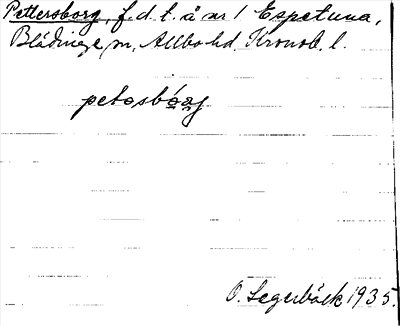 Pettersborg, f.d.t. å nr 1 Espetuna,
Blädinge sn, Allbo hd. Kronob. l.
petosbórj
O. Segerbäck 1935.